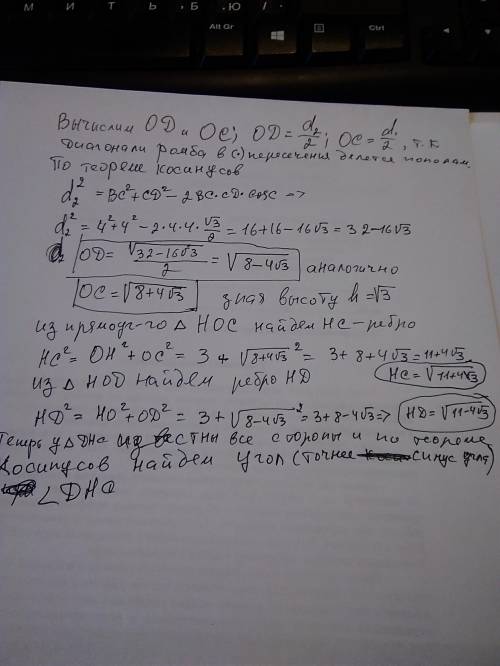 М И Т Ь Б . Ю /
Alt Gr Ctrl
Вычислим OD и OC; OD = d₂/2; OC = d₁/2, т.к
диагонали ромба в (·) пересечения делятся пополам.
По теореме косинусов
d₂² = BC² + CD² − 2BC·CD·cosC =>
d₂² = 4² + 4² − 2·4·4·√3/2 = 16+16−16√3 = 32−16√3
OD = √(32−16√3)/2 = √(8−4√3) аналогично
OC = √(8+4√3) зная высоту h = √3
из прямоуг-го △ HOC найдем HC-ребро
HC² = OH² + OC² = 3 + √(8+4√3)² = 3+8+4√3 = 11+4√3
HC = √(11+4√3)
из △ HOD найдем ребро HD
HD² = HO² + OD² = 3 + √(8−4√3)² = 3+8−4√3 => HD = √(11−4√3)
Теперь у △DHC известны все стороны и по теореме
Косинусов найдем угол (точнее синус угла)
∠DHC